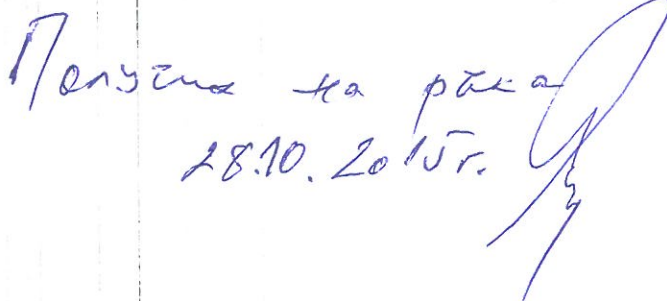 Получих на ръка
28.10.2015г.